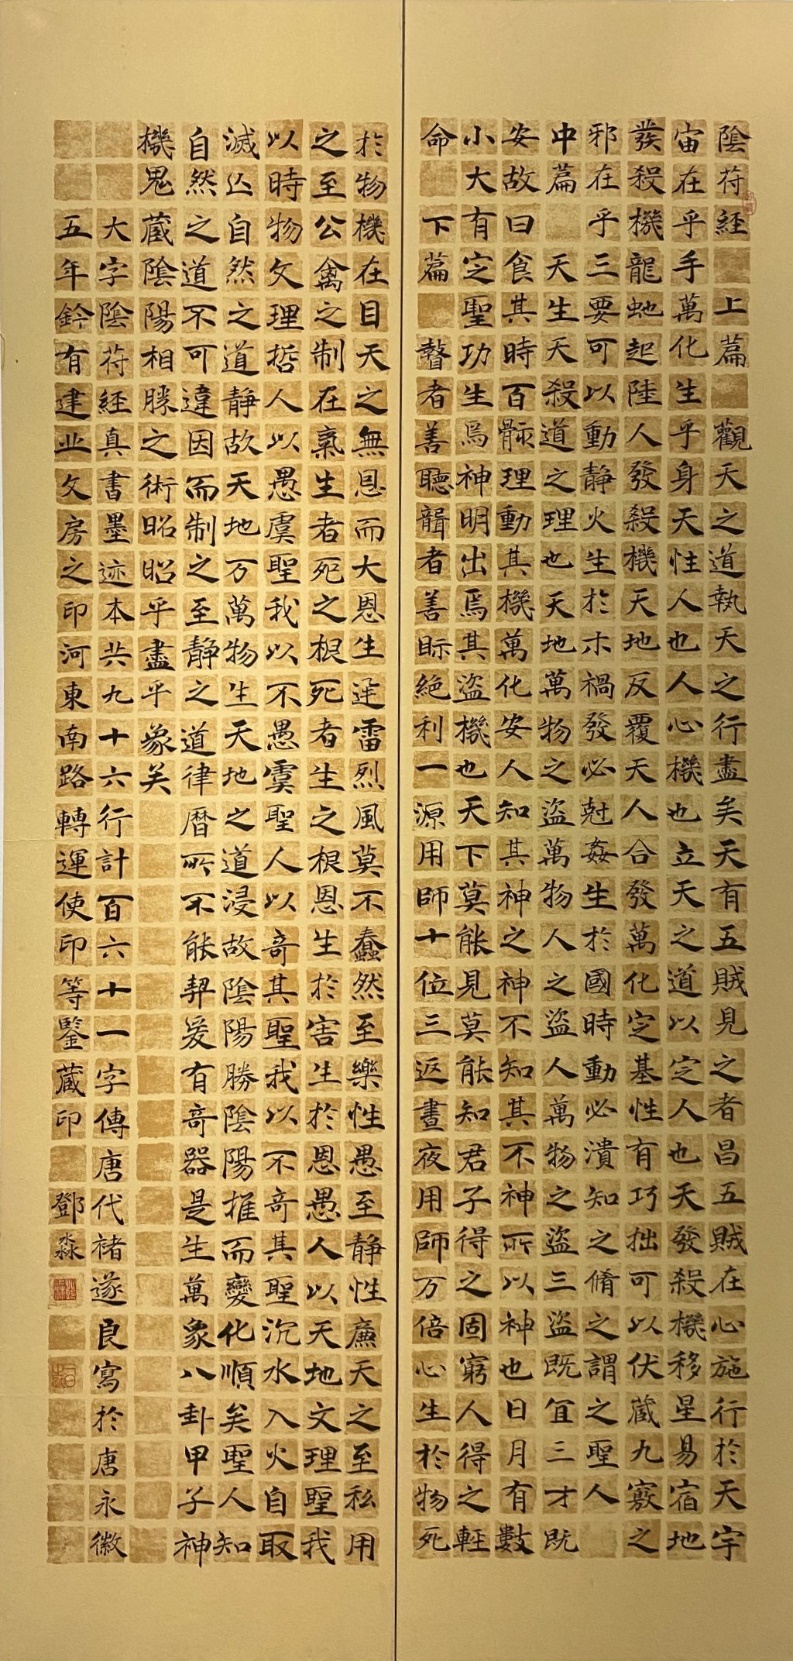 陰符經 上篇 觀天之道執天之行盡矣天有五賊見之者昌五賊在心施行於天宇
宙在乎手萬化生乎身天性人也人心機也立天之道以定人也天發殺機移星易宿地
發殺機龍虵起陸人發殺機天地反覆天人合發萬化定基性有巧拙可以伏藏九竅之
邪在乎三要可以動靜火生於木禍發必尅姦生於國時動必潰知之脩之謂之聖人
中篇 天生天殺道之理也天地萬物之盜萬物人之盜人萬物之盜三盜既宜三才既
安故曰食其時百骸理動其機萬化安人知其神之神不知其不神所以神也日月有數
小大有定聖功生焉神明出焉其盜機也天下莫能見莫能知君子得之固窮人得之輕
命 下篇 瞽者善聽聾者善眎絕利一源用師十位三返晝夜用師万倍心生於物死
於物機在目天之無恩而大恩生迅雷烈風莫不蠢然至樂性愚至靜性廉天之至私用
之至公禽之制在氣生者死之根死者生之根恩生於害生於恩愚人以天地文理聖我
以時物文理哲人以愚虞聖我以不愚虞聖人以奇其聖我以不奇其聖沉水入火自取
滅亾自然之道靜故天地万萬物生天地之道浸故陰陽勝陰陽推而變化順矣聖人知
自然之道不可違因而制之至靜之道律曆所不能契爰有奇器是生萬象八卦甲子神
機鬼藏陰陽相勝之術昭昭乎盡乎象矣
大字陰符經真書墨迹本共九十六行計百六十一字傳唐代褚遂良寫於唐永徽
五年鈐有建业文房之印河東南路轉運使印等鑒藏印 鄧淼